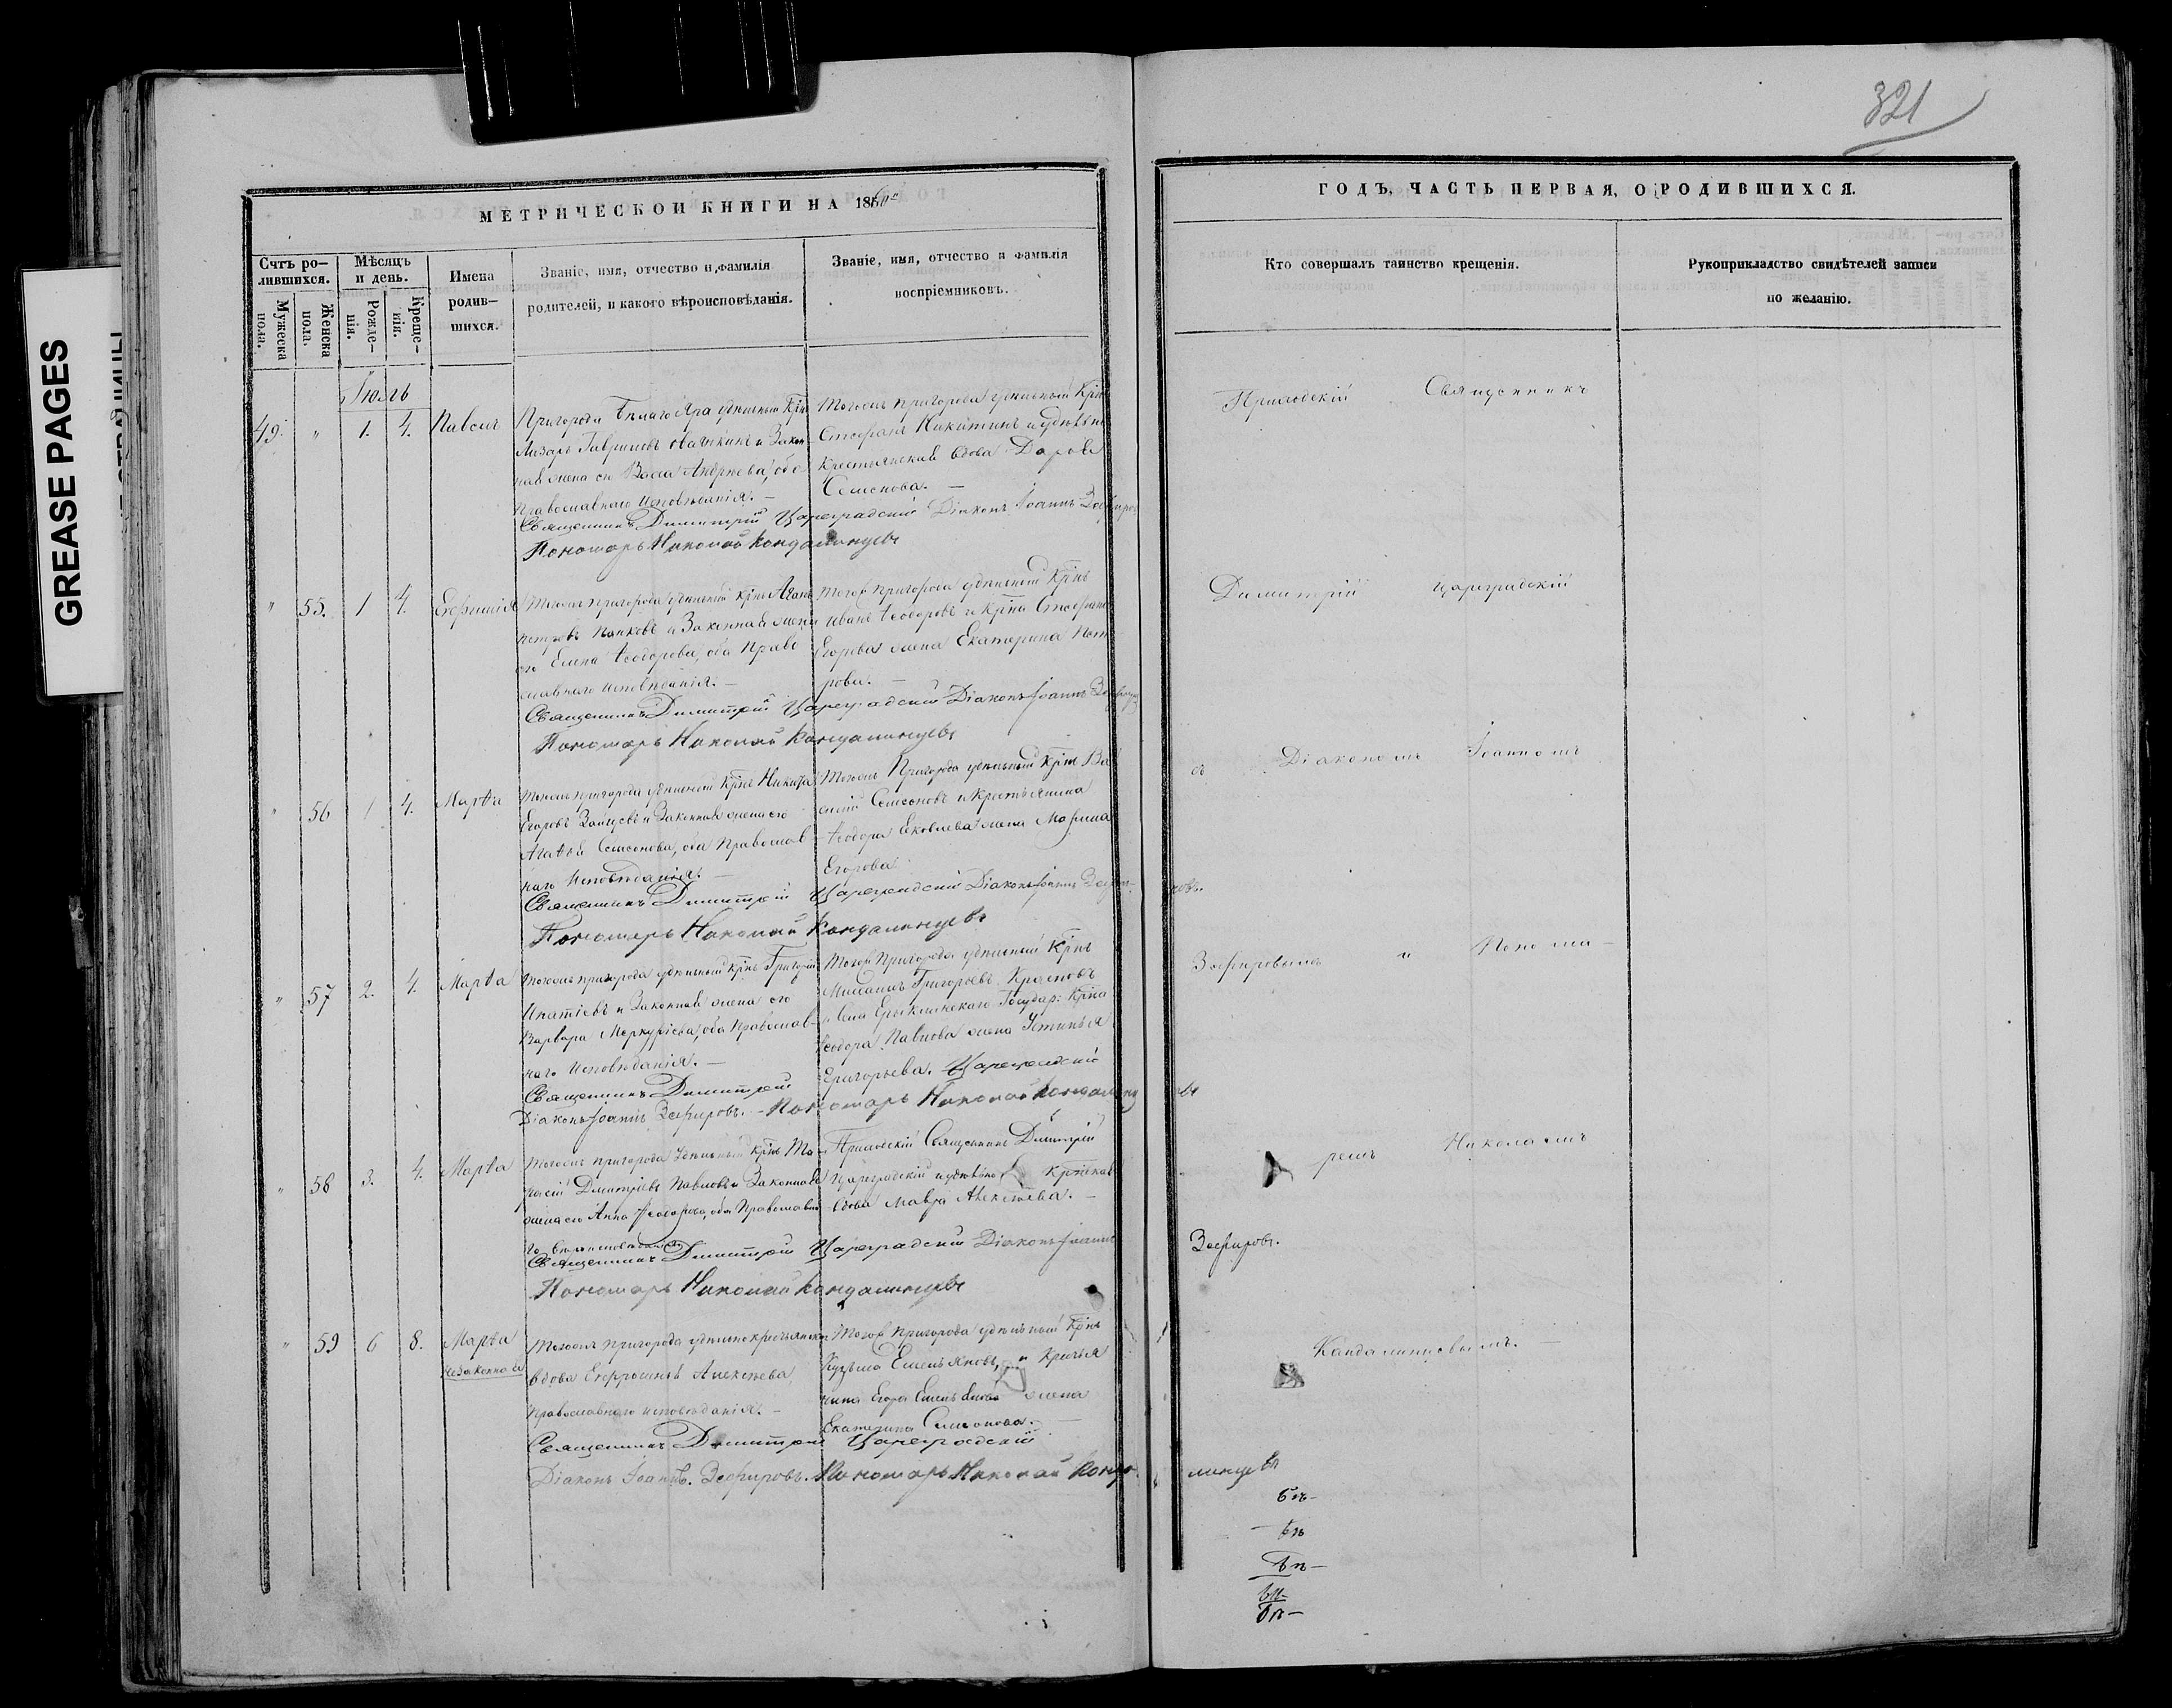 321
GREASE PAGES
МЕТРИЧЕСКОЙ КНИГИ НА 186
ГОДЪ, ЧАСТЬ ПЕРВАЯ, О РОДИВШИХСЯ.
Счтъ ро-
дившихся.
Мужеска
пола.
Женска
пола.
Мѣсяцъ
и день.
Рожде-
нія.
Креще-
нія.
Имена
родив-
шихся.
Званіе, имя, отчество и фамилія
родителей, и какого вѣроисповѣданія.
Званіе, имя, отчество и фамилія
воспріемниковъ.
Кто совершалъ таинство крещенія.
Рукоприкладство свидѣтелей записи
по желанію.
Іюль
49. " 1. 4. Павелъ
Пригорода Бѣлаго Яра удѣльный Крнъ
Лазарь Гавриловъ и Закон-
ная жена его Васса Андреева, оба
православнаго исповѣданія. —
Тогожъ пригорода удѣльный Крнъ
Стефанъ Никитинъ и удѣльн
крестьянская вдова Дарья
Семенова. —
Священникъ Димитрій Цареградскій Діаконъ Іоаннъ Зефиров
Пономарь Николай Кандалинцевъ
" 55. 1 4. Евфимія
Тогожъ пригорода удѣльный Крнъ
Петровъ и Законная жена
его Елена Ѳеодорова, оба Право
славнаго исповѣданія. —
Тогоѣ пригорода удѣльный Крнъ
Иванъ Ѳеодоровъ и Крна Стефана
Егорова жена Екатерина Пет
рова. —
Священникъ Димитрій Цареградскій Діаконъ Іоаннъ
Пономарь Николай Кандалинцевъ
" 56 1 4. Марѳа
Тогожъ пригорода удѣльный Крнъ Никита
Егоровъ Зайцевъ и Законная жена его
Агаѳья Семенова, оба Православ
наго исповѣданія. —
Тогожъ Пригорода удѣльный Крнъ Ва
силій Семеновъ и Крестьянина
Ѳеодора Яковлева жена Марина
Егорова
Священникъ Димитрій Цареградскій Діаконъ Іоаннъ Зефи-
ровъ.
Пономарь Николай Кандалинцевъ
" 57 2. 4. Марѳа
Тогожъ пригорода удѣльный Крнъ Григорій
Игнатіевъ и Законная жена его
Варвара Меркуріева, оба Православ-
наго исповѣданія. —
Тогоѣ Пригорода удѣльный Крнъ
Михаилъ Григорьевъ Красновъ
и села Ерыклинскаго Государ: Крна
Ѳеодора Павлова жена Устинья
Григорьева.
Священникъ Димитрій Цареградскій
Діаконъ Іоаннъ Зефировъ. Пономарь Николай Кандалинц
евъ
" 58 3. 4. Марѳа
Тогожъ пригорода Удѣльный Крнъ
Дмитріевъ Павловъ и Законная
жена его Анна Ѳеодорова, оба Православна
го вѣроисповѣданія
Приходскій Священникъ Димитрій
Цареградскій и удѣльно Крпская
вдова Мавра Алексѣева. —
Священникъ Димитрій Цареградскій Діаконъ Іоаннъ
Зефировъ.
Пономарь Николай Кандалинцевъ
" 59 6 8. Марѳа
незаконная
Тогожъ пригорода удѣльно крестьянская
вдова Евфросинья Алексѣева
православнаго исповѣданія. —
Тогоѣ пригорода удѣльный Крнъ
Кузьма Емельяновъ, и Кретья
нина Егора Емельянова жена
Екатерина Семенова. —
Священникъ Димитрій Цареградскій
Діаконъ Іоаннъ Зефировъ. Пономарь Николай Канда
линцевъ
Приходскій Священникъ
Димитрій Цареградскій
съ Діакономъ Іоанномъ
Зефировымъ и Понома-
ремъ Николаемъ
Кандалинцевымъ. —